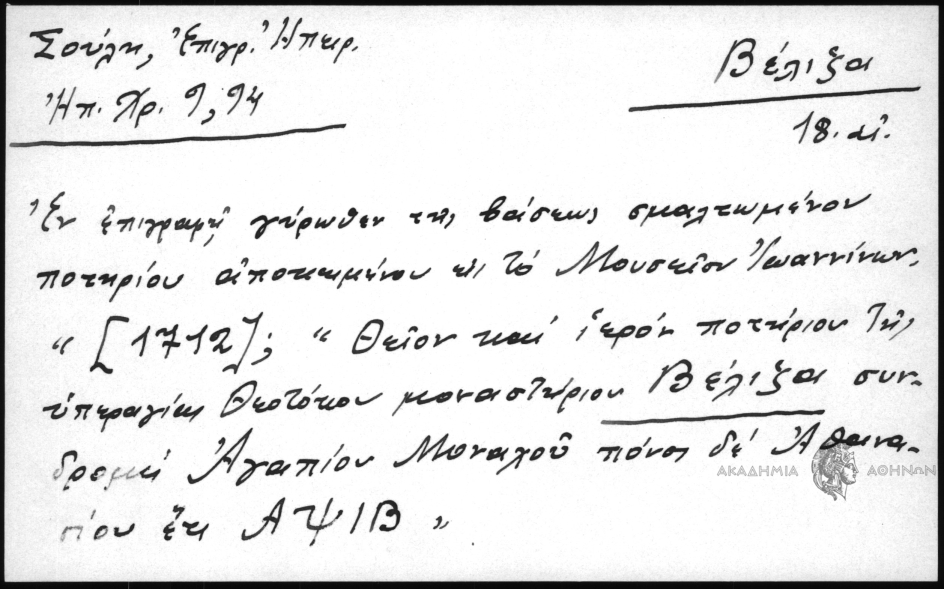 Σούλη, Ἐπιγρ. Ἠπειρ.
Ἠπ. Χρ. 9, 94
Βέλιξα
18. αἰ.
Ἐν ἐπιγραφῇ γύρωθεν τῆς βάσεως σμαλτωμένου
ποτηρίου ἀποκειμένου εἰς τό Μουσεῖον Ἰωαννίνων.
" [1712]; " Θεῖον καί ἱερόν ποτήριον τῆς
ὑπεραγίας Θεοτόκου μοναστηρίου Βέλιξα συν-
δρομή Ἀγαπίου Μοναχοῦ πόνοι δέ Ἀθανα-
σίου ἔτει ΑΨΙΒ "
ΑΚΑΔΗΜΙΑ ΑΘΗΝΩΝ